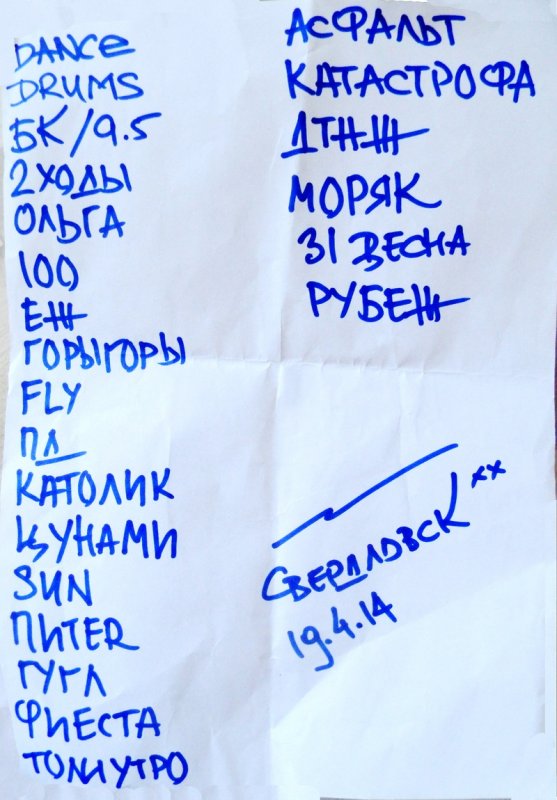 DANCE
DRUMS
БК/9.5
2ХОДЫ
ОЛЬГА
100
ЕЖ
ГОРЫГОРЫ
FLY
ПД
КАТОЛИК
ЦУНАМИ
SUN
ПИТЕR
ГУГЛ
ФИЕСТА
ТОЛИУТРО
АСФАЛЬТ
КАТАСТРОФА
ДТНЖ
МОРЯК
31 ВЕСНА
РУБЕЖ
СВЕРДЛОВСК xx
19.4.14